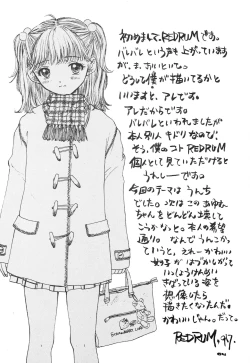 初めまして、REDRUMです。
バレバレという声も上がっています
が、ま、おいといて。
どうして僕が描いてるかと
いいますと、アレです。
アレだからです。
バレバレといわれましたが
本人別人キドリなので、
そう、僕のコトREDRUM
個人として見ていただけると
うれしーです。
今回のテーマはうんち
でした。
ちゃんをどんどん壊して
こうかなっと。本人の希望
通り。なんでうんこか。
っていうと、えれーかわいい
女の子がはづかしがって
いっしょうけんめい
きばっている姿を
想像したら
描きたくなったんだ。
かわいいじゃん。だって。
REDRUM, '97.